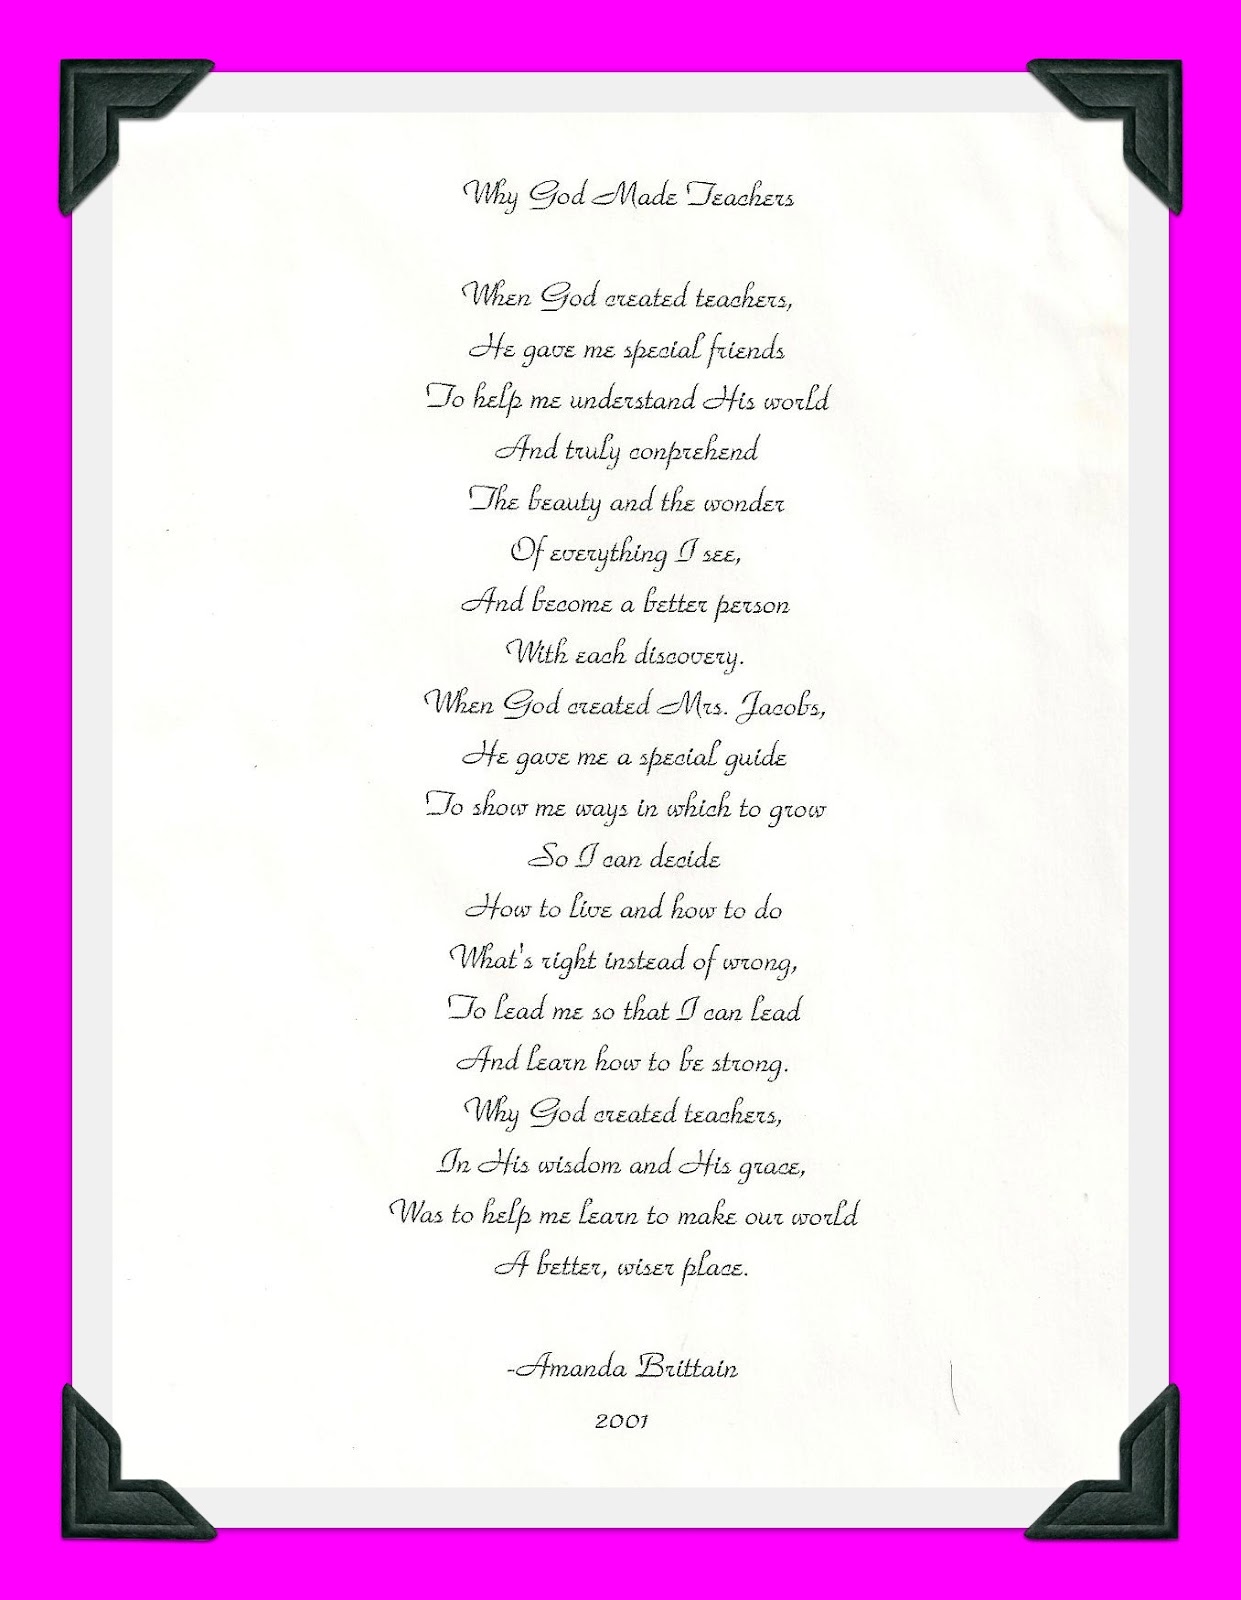 Why God Made Teachers
When God created teachers,
He gave me special friends
To help me understand His world
And truly conprehend
The beauty and the wonder
Of everything I see,
And become a better person
With each discovery.
When God created Mrs. Jacobs,
He gave me a special guide
To show me ways in which to grow
So I can decide
How to live and how to do
What's right instead of wrong,
To lead me so that I can lead
And learn how to be strong.
Why God created teachers,
In His wisdom and His grace,
Was to help me learn to make our world
A better, wiser place.
-Amanda Brittain
2001